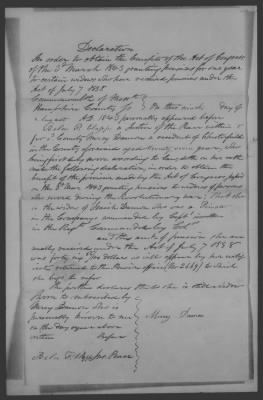 Declaration
In order to obtain the benefits of the Act of Congress
of the 3d March 1843 granting pensions for one year
to certain widows who have received pensions under the
Act of July 7 1838
Commonwealth of
Hampshire County Ss. On this ninth day of
August AD 1843 personally appeared before
Bela P. Clapp a Justice of the Peace within
for sd County Mercy a resident of Chesterfield
in the County aforesaid aged years, who
being first duly sworn according to law, doth on her oath
make the following declaration in order to obtain the
benefit of the provision made by the Act of Congress passed
on the 3d Mar 1843 granting pensions to widows of persons
who served during the Revolutionary war: That she
is the widow of who was a Private
in the Company commanded by Capt
in the Regt Commanded by Col
and the amt of pension she
received under the Act of July 7 1838
was forty dollars as will appear by her
returned to the Pension office (No 2669) to which
she begs to refer
She further declares that she is still a widow
Sworn to & subscribed by
Mercy who is
personally known to me
on the day & year above
written Before
Bela P. Clapp Jus. Peace
Mercy